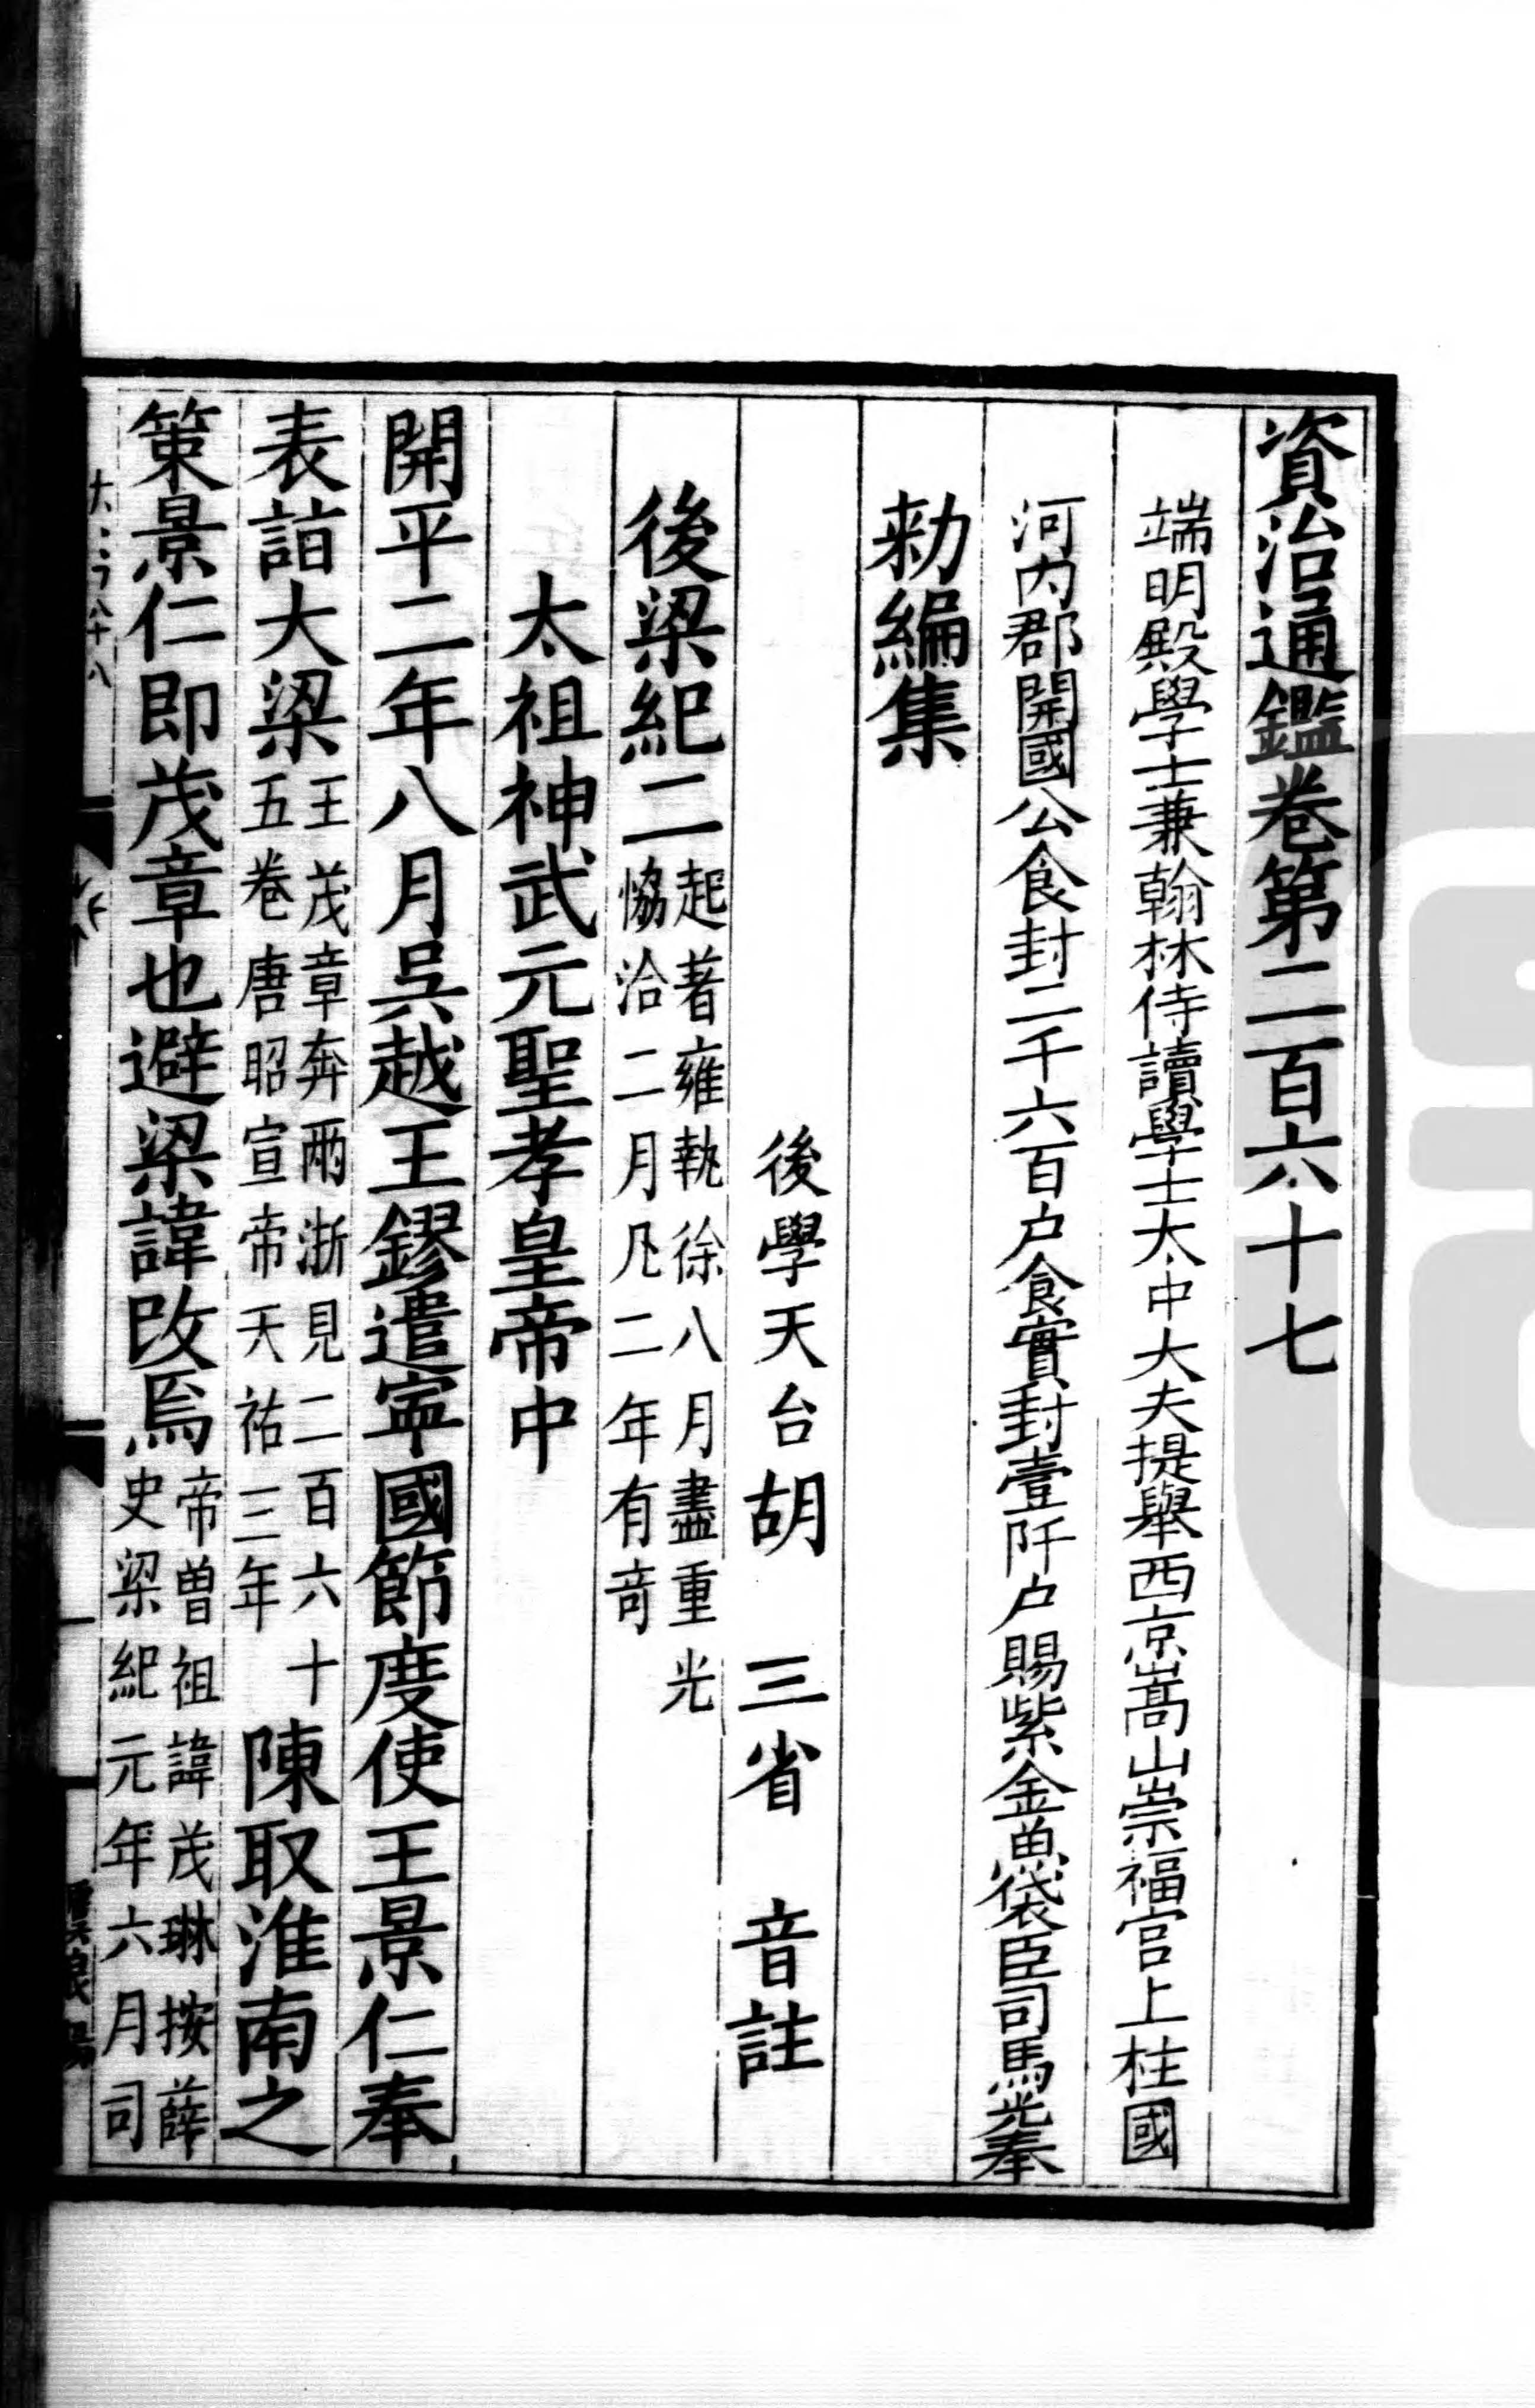 資治通鑑卷第二百六十七
端明殿學士兼翰林侍讀學士太中大夫提舉西京嵩山崇福宫上柱國
河内郡開國公食封二千六百户食實封壹阡户賜紫金魚袋臣司馬光奉
勑編集
後學天台胡三省音註
後梁紀二起著雍執徐八月盡重光
恊洽二月凡二年有竒
太祖神武元聖孝皇帝中
開平二年八月吳越王鏐遣寧國節度使王景仁奉
表詣大梁王茂章奔兩浙見二百六十
五卷唐昭宣帝天祐三年陳取淮南之
策景仁即茂章也避梁諱改焉帝曾祖諱茂琳按薛
史梁紀元年六月司